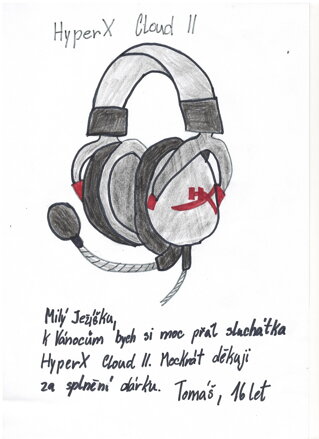 HyperX Cloud II
HX
Milý Ježíšku,
k Vánocům bych si moc přál sluchátka
HyperX Cloud II. Mockrát děkuji
za splnění dárku. Tomáš, 16 let